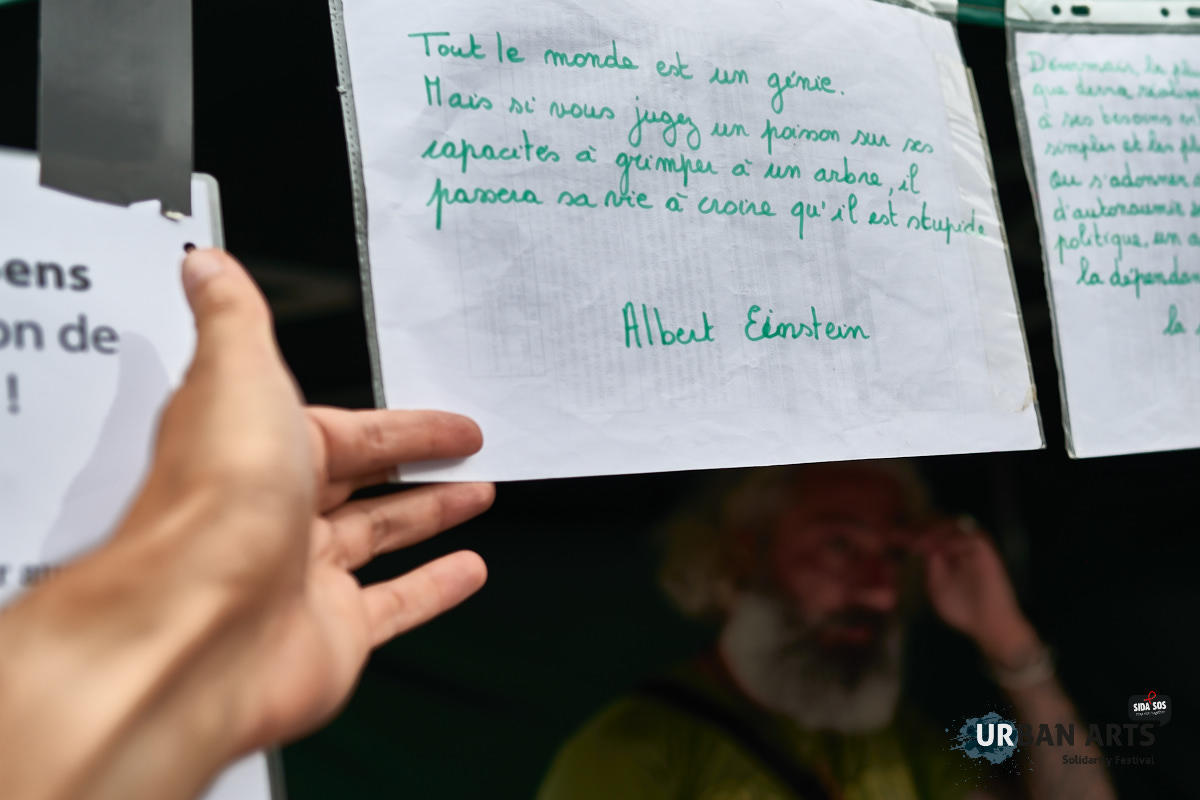 Tout le monde est un génie.
Mais si vous jugez un poisson sur ses
capacités à grimper à un arbre, il
passera sa vie à croire qu'il est stupide
Albert Einstein
ens
on de
!
Désormais, la pl
que devra
à ses besoins
simples et les pl
ou s'adonner
d'autonomie
politique, un a
la dépendan
la
SIDA SOS
URBAN ARTS
Solidarity Festival